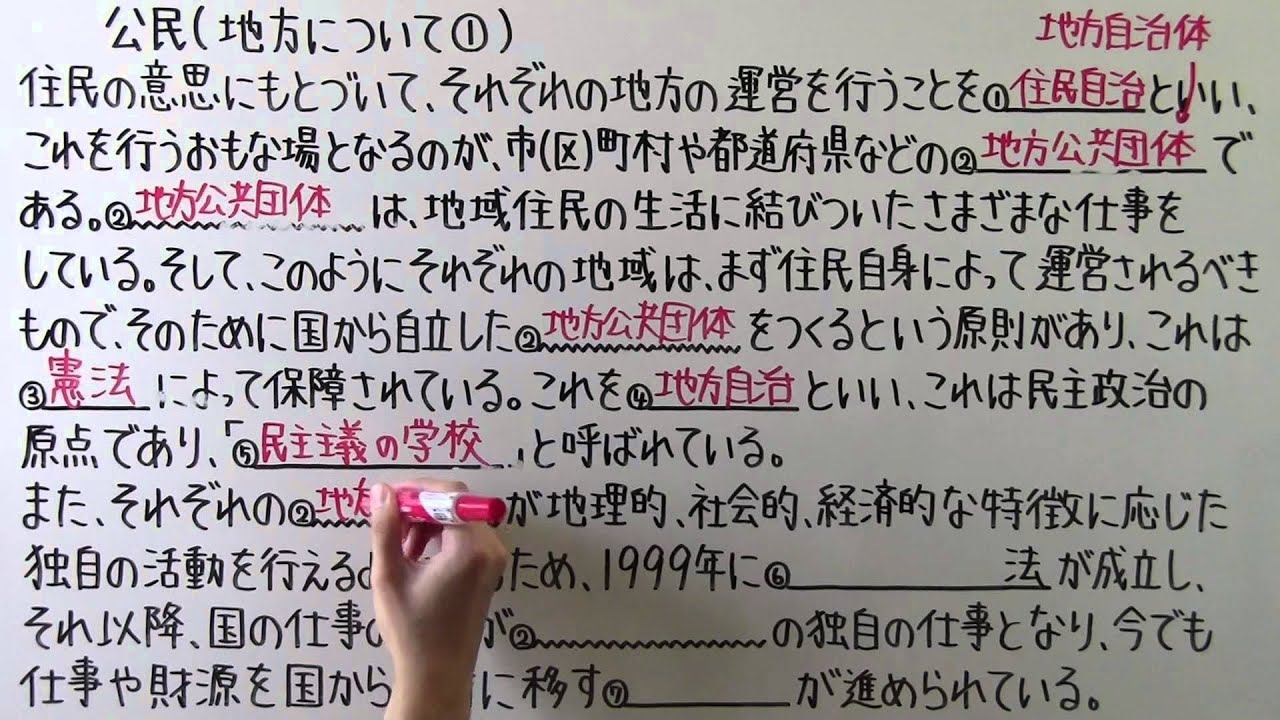 公民(地方について①)
地方自治体
住民の意思にもとづいて、それぞれの地方の運営を行うことを①住民自治といい、
これを行うおもな場となるのが、市(区)町村や都道府県などの②地方公共団体で
ある。②地方公共団体は、地域住民の生活に結びついたさまざまな仕事を
している。そして、このようにそれぞれの地域は、まず住民自身によって運営されるべき
もので、そのために国から自立した②地方公共団体をつくるという原則があり、これは
③憲法によって保障されている。これを④地方自治といい、これは民主政治の
原点であり、「⑤民主主義の学校」と呼ばれている。
また、それぞれの②地方が地理的、社会的、経済的な特徴に応じた
独自の活動を行えるため、1999年に⑥法が成立し、
それ以降、国の仕事の が②の独自の仕事となり、今でも
仕事や財源を国から に移す⑦が進められている。